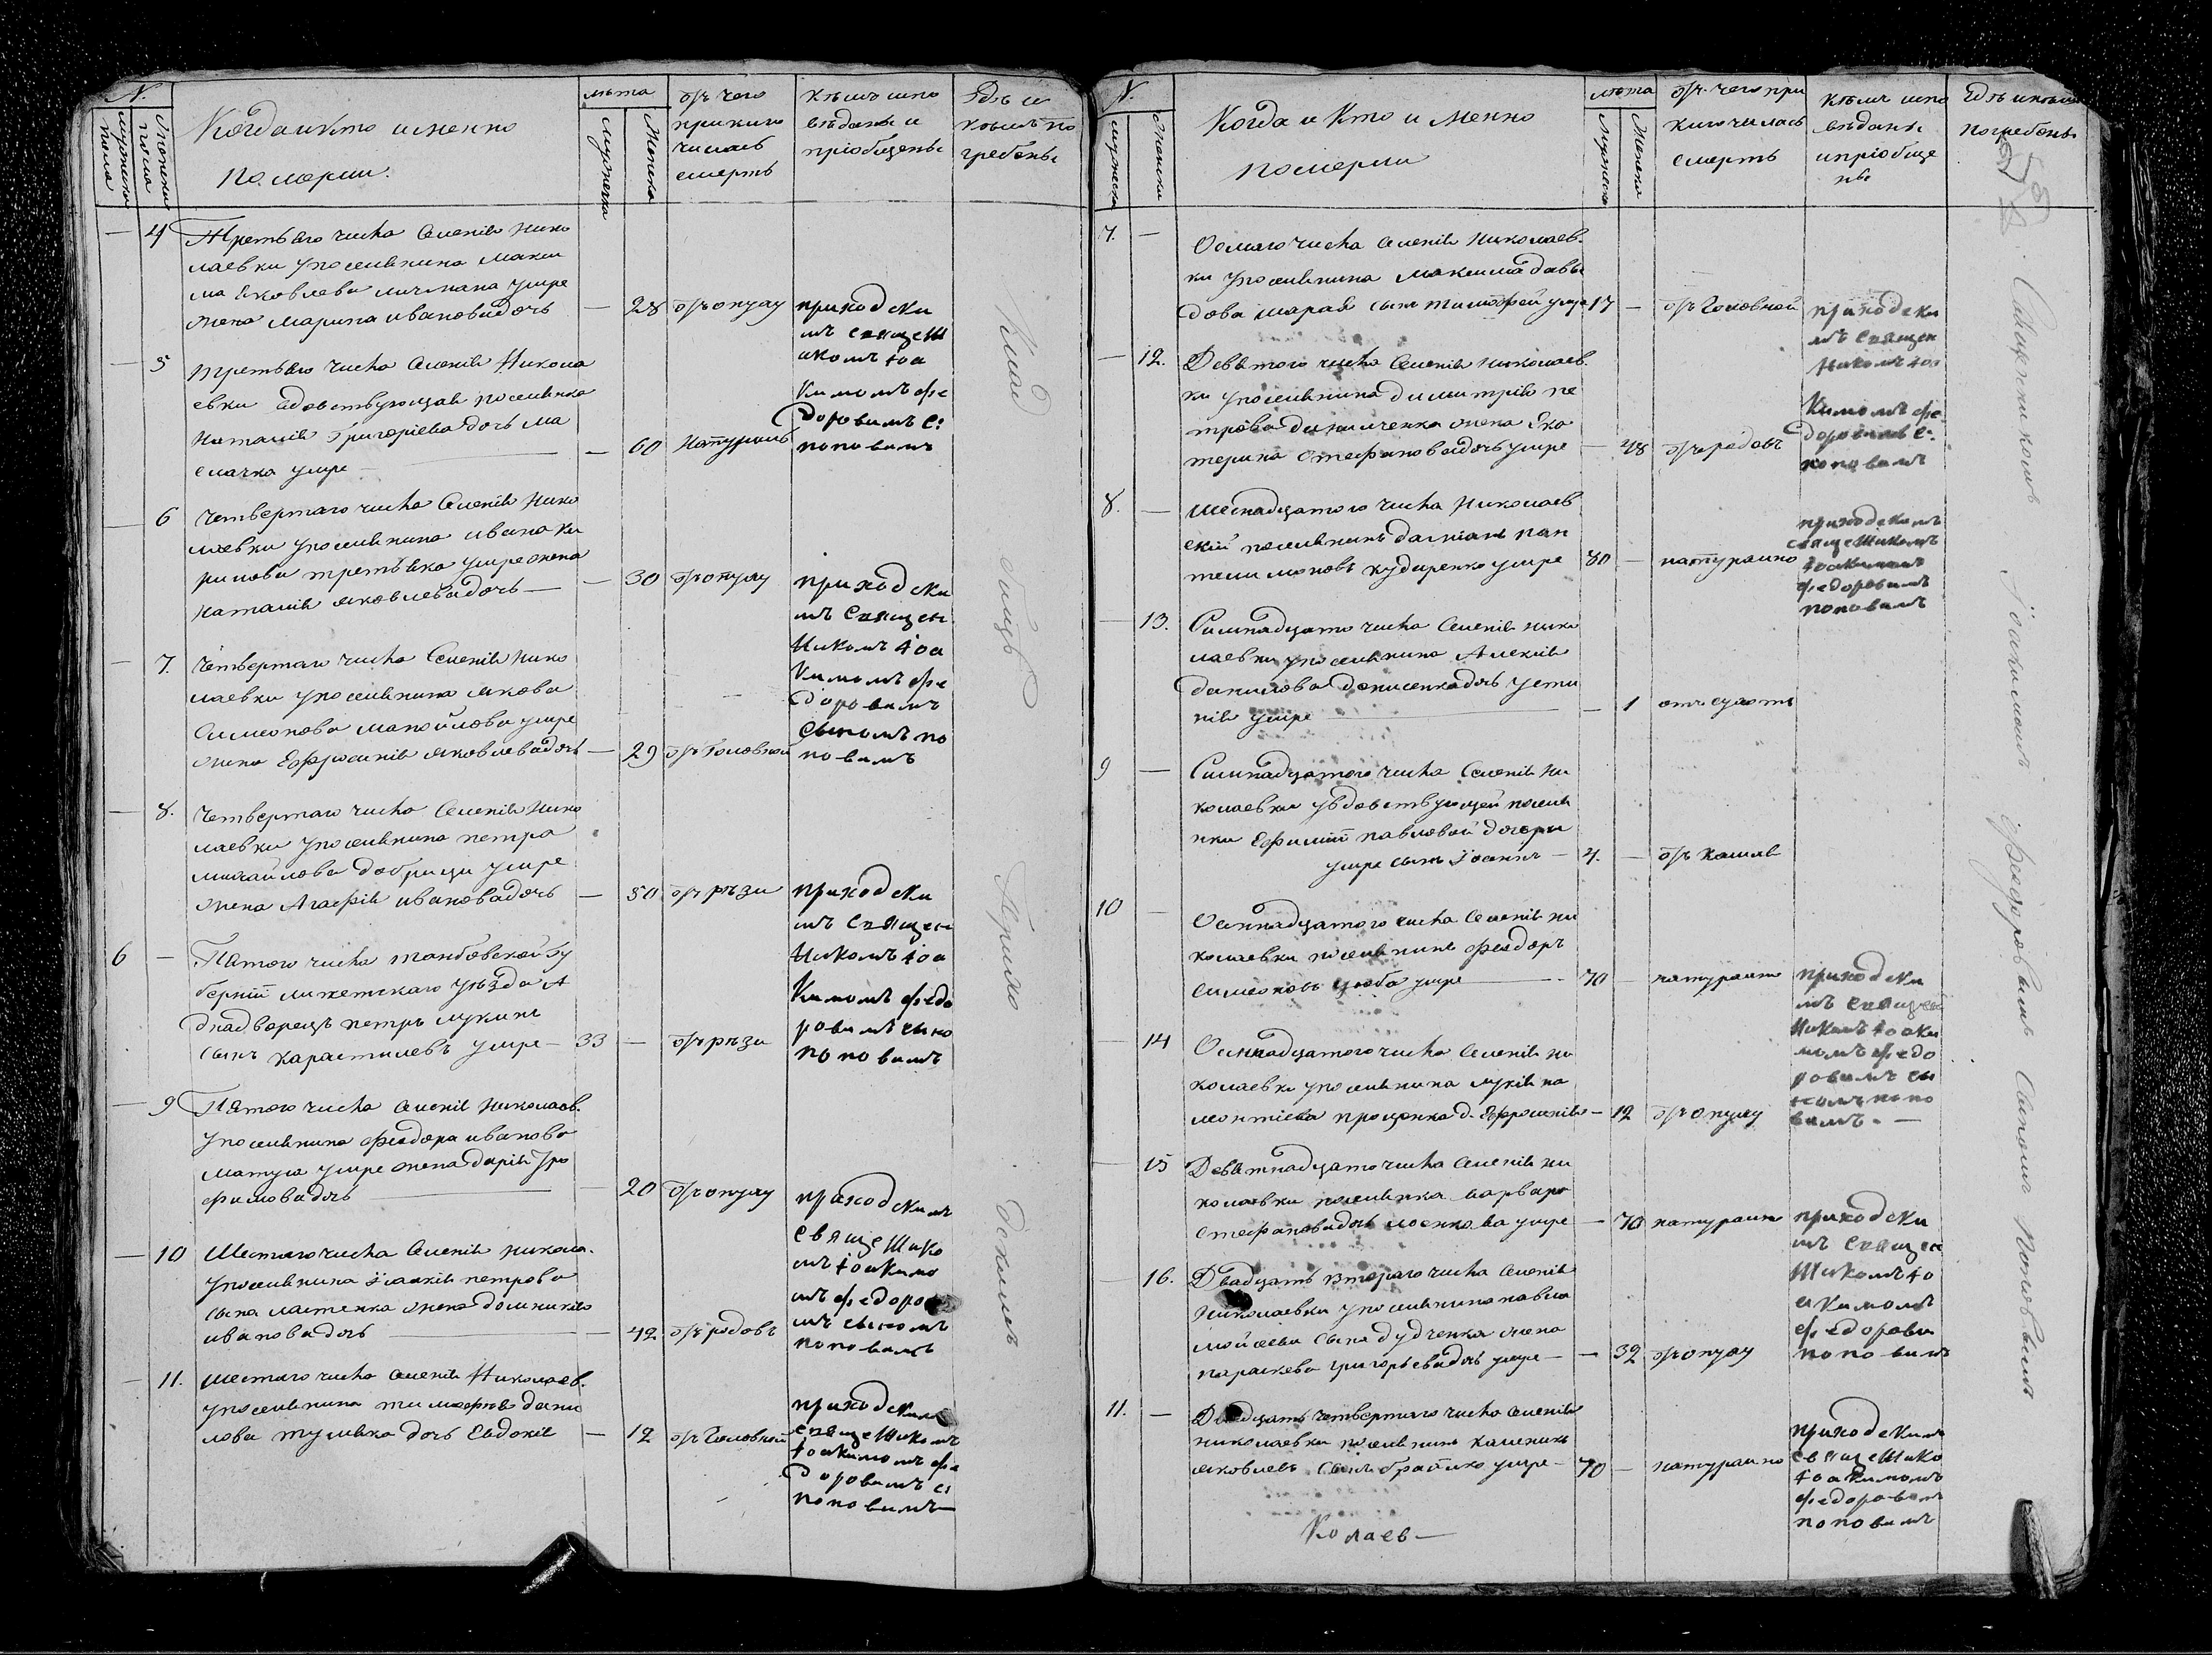 N.
мужеска пола
женска пола
Когда и кто именно
померли.
лѣта
мужеска
Женска
отъ чего
приключи
чилась
смерть
кѣмъ испо
вѣданы и
пріобщены
Гдѣ и
кѣмъ по
гребены
— 4 Третьяго числа Селенія Нико
лаевки упоселянина Макси
ма Яковлева личмана умре
жена Марина Ивановадочь — 28 отъ опуху
приходски
мъ священ
икомъ Іоа
кимомъ фе
доровымъ с:
поповымъ
— 5 третьяго числа Селенія Никола
евки вдовствующая поселянка
Наталія Григоріева дочь Ма
слачка умре — 60 Натурально
— 6 четвертаго числа Селенія Нико
лаевки упоселянина Ивана Ки
рилова третьяка умре жена
Наталія Яковлевадочь — 30 отъ опуху
приходски
мъ священ
никомъ Іоа
кимомъ фе
доровымъ
сыномъ по
повымъ
— 7. Четвертаго числа Селенія Нико
лаевки упоселянина Якова
Симеонова Манойлова умре
жена Ефросинія Яковлевадочь — 29 отъ Головной
— 8. Четвертаго числа Селенія Нико
лаевки упоселянина петра
михайлова добрици умре
жена Агафія Ивановадочь — 50 отъ рѣзи
приходски
мъ священ
никомъ Іоа
кимомъ федо
ровымъ сыно
поповымъ
6 — Пятого числа тамбовской гу
берніи липетскаго уѣзда А
днадворецъ петръ лукинъ
сынъ харастилевъ умре — 33 — отъ рѣзи
— 9 Пятого числа Селенія Николаев.
упоселянина феодора иванова
матуса умре жена дарія Тро
фимовадочь — 20 отъ опуху
приходскимъ
священико
мъ Іоакимо
мъ федоров
мъ сыномъ
поповымъ
— 10 Шестаго числа Селенія никола.
упоселянина Іоанкія петрова
сына ластенка жена домникія
ивановадочь — 42 отъ родовъ
— 11. шестаго числа Селенія Николаев.
упоселянина тимофея дани
лова тулявка дочь Евдокія — 12 отъ Головной
приходскимъ
священикомъ
Іоакимомъ фе
доровымъ с:
поповымъ
На кладбищѣ Приходскомъ
N.
мужеска
Женска
Когда и Кто и Менно
померли
лѣта
мужеска
Женска
отъ чего при
ключилась
смерть
кѣмъ испо
вѣданы
и пріобще
ны
Гдѣ и кѣмъ
погребены
7. — Осмаго числа Селенія Николаев.
ки упоселянина Максима Давы
дова шарая сынъ тимофей умре 17 — отъ Головной
приходски
мъ священ
никомъ Іоа
кимомъ фе
доровымъ с:
поповымъ
— 12. Девятого числа Селенія Николаев.
ки упоселянина димитрія пе
трова жена Ека
терина Стефановадочь умре — 48 отъ родовъ
8. — шеснадцатого числа Николаев
скій поселянинъ даміанъ пан
телимоновъ кудиренко умре 80 — натурално
приходскимъ
священикомъ
Іоакимомъ
федоровымъ
поповымъ
— 13. Симнадцато числа Селенія нико
лаевки упоселянина Алексія
данилова денисенка дочь усти
нія умре — 1
9 — Симнадцатого числа Селенія Ни
колаевки увдовствующей поселя
нки Ефиміи павловой дочери
умре сынъ Іоаннъ — 4. — отъ Кашля
10 — Осмнадцатого числа Селенія ни
колаевки поселянинъ феодоръ
симеоновъ цюба умре — 70 — натурално
приходски
мъ священ
никомъ Іоаки
момъ федо
ровымъ сы
номъ попо
вымъ. —
— 14 Осмнадцатого числа Селенія ни
колаевки упоселянина лукія па
проценка д. Ефросинія — 12 отъ опуху
— 15 Девятнадцато числа Селенія ни
колаевки поселянка варвара
Стефановадочь умре — 70 натурално
приходски
мъ священ
никомъ Іо
акимомъ
федоровы
поповымъ
— 16. Двадцать втораго числа Селенія
Николаевки упоселянина павла
мойсеева сына дудченка жена
параскева григорьевадочь умре — 32 отъ опуху
11. — Двадцать четвертаго числа Селенія
николаевки поселянинъ калиникъ
яковлевъ сынъ братко умре — 70 — натурално
приходскимъ
священико
Іоакимомъ
федоровымъ
поповымъ
Колаев —
Священникомъ Іоакимомъ Феодоровымъ Сыномъ Поповымъ